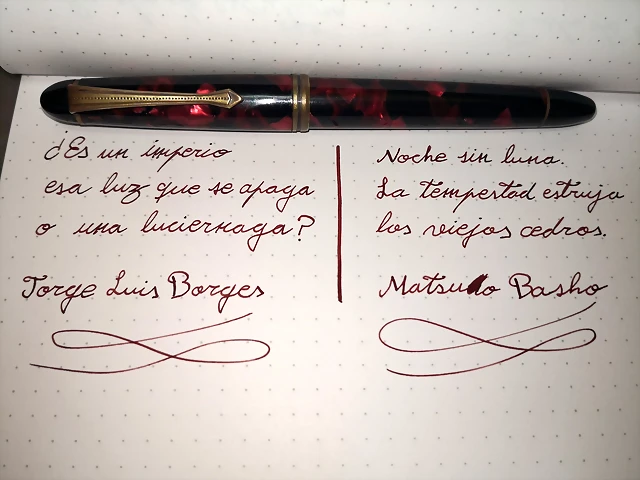 ¿Es un imperio
esa luz que se apaga
o una luciernaga?
Jorge Luis Borges
Noche sin luna.
La tempestad estruja
los viejos cedros.
Matsuo Basho